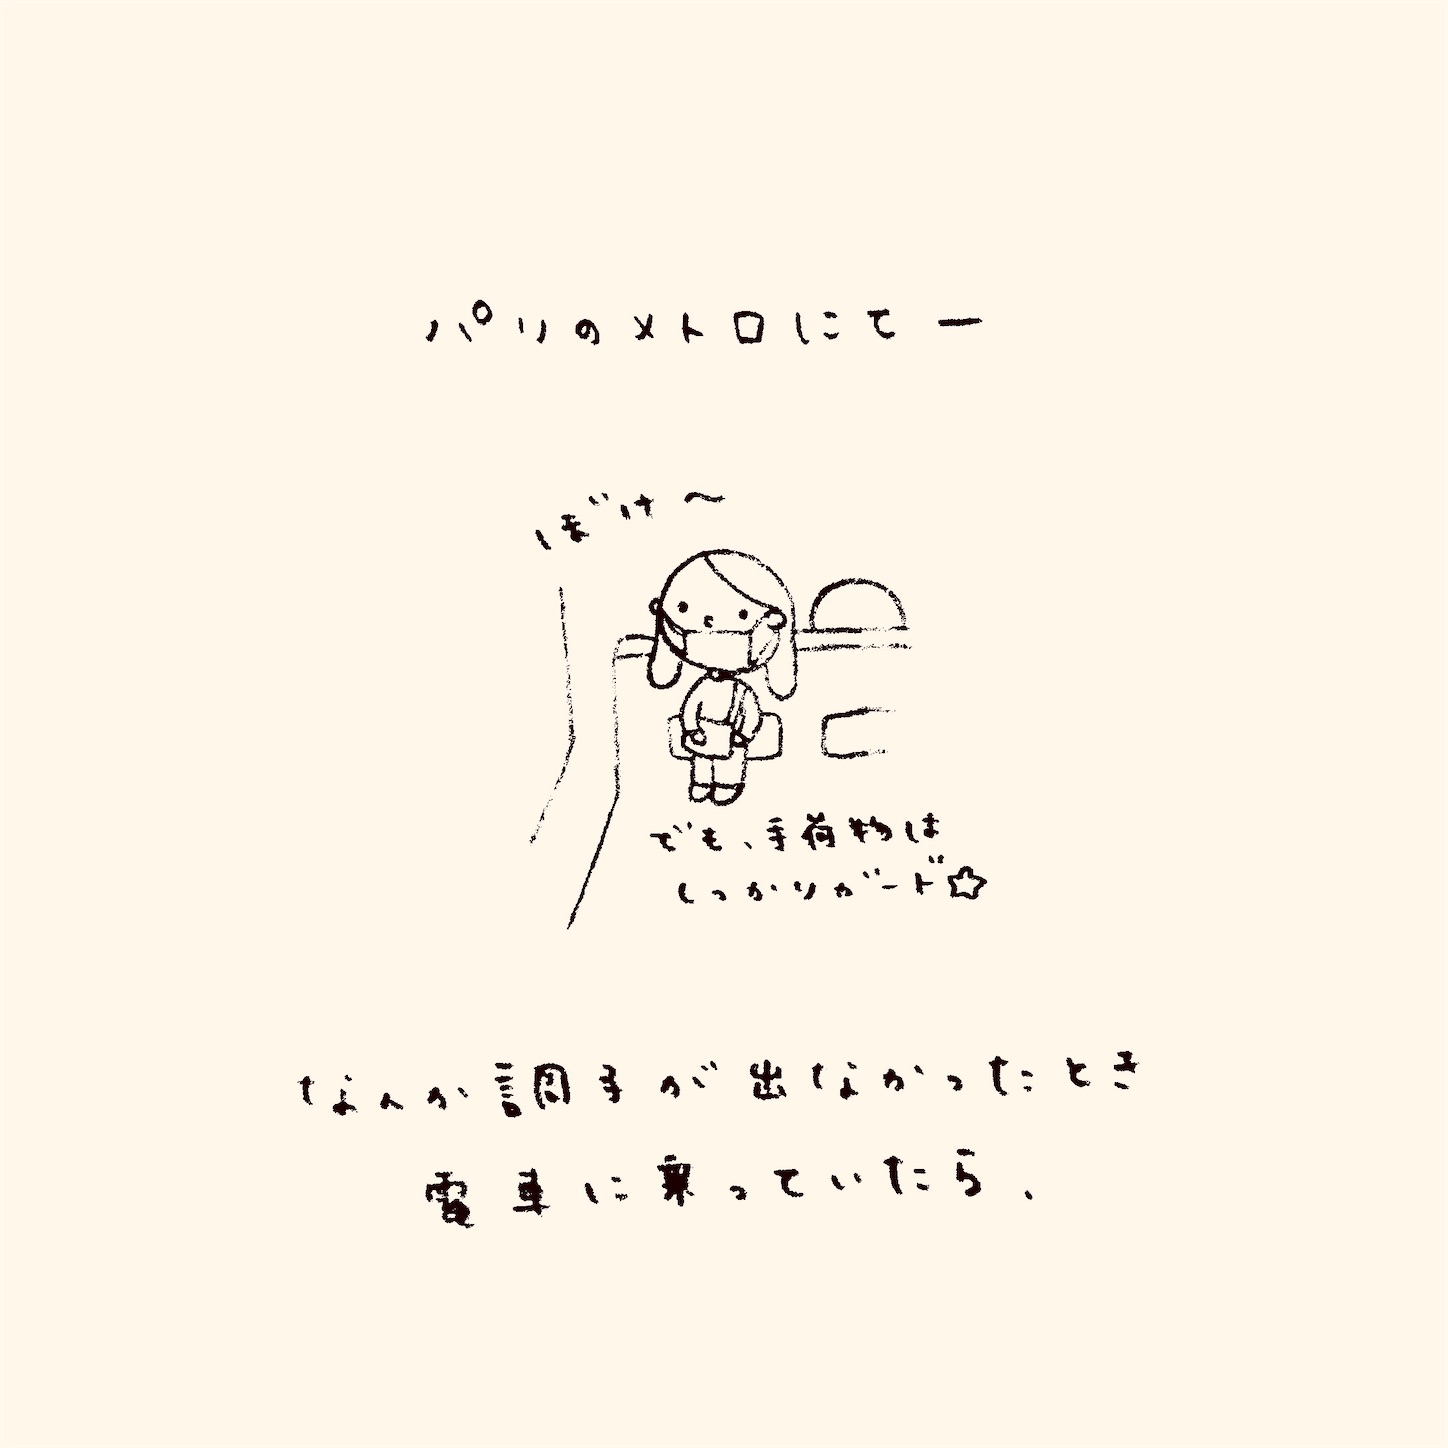 パリのメトロにてー
ぼけ〜
でも、手荷物は
しっかりガード☆
なんか調子が出なかったとき
電車に乗っていたら、